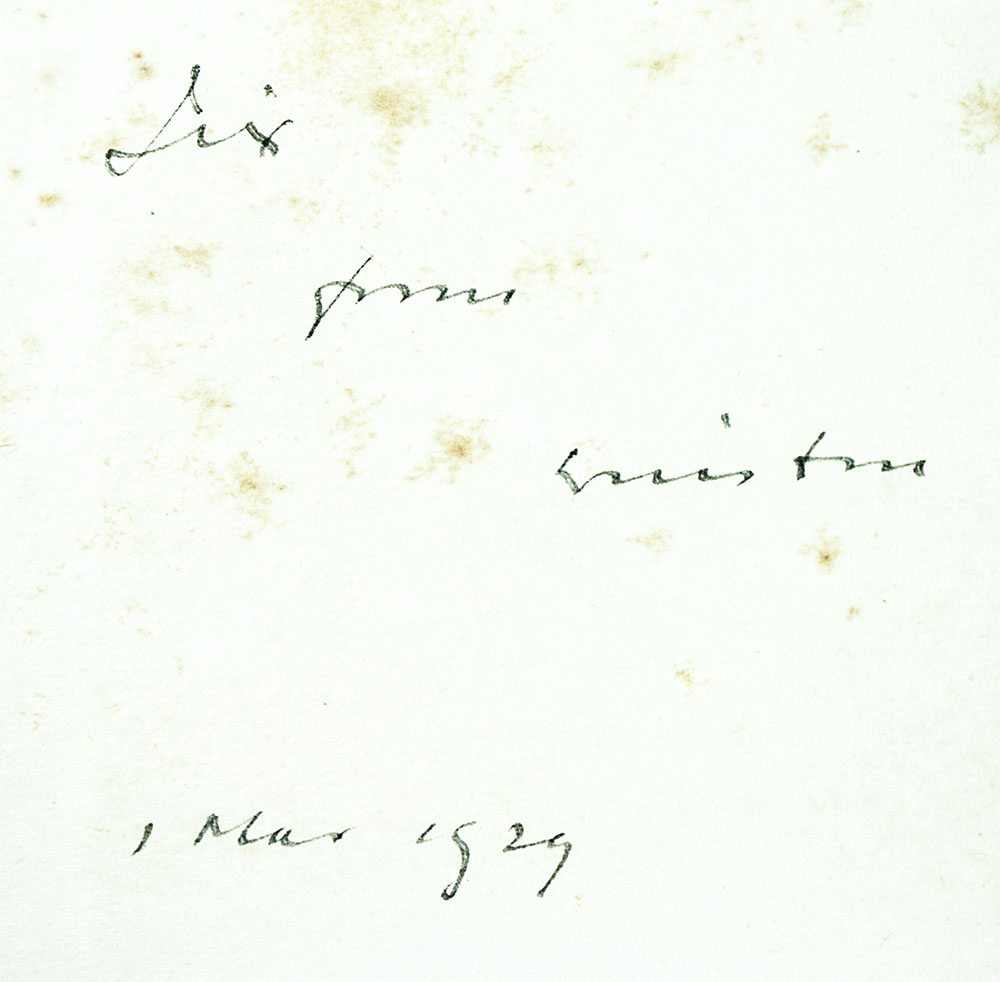 Jix
from
Winston
1 Mar 1929